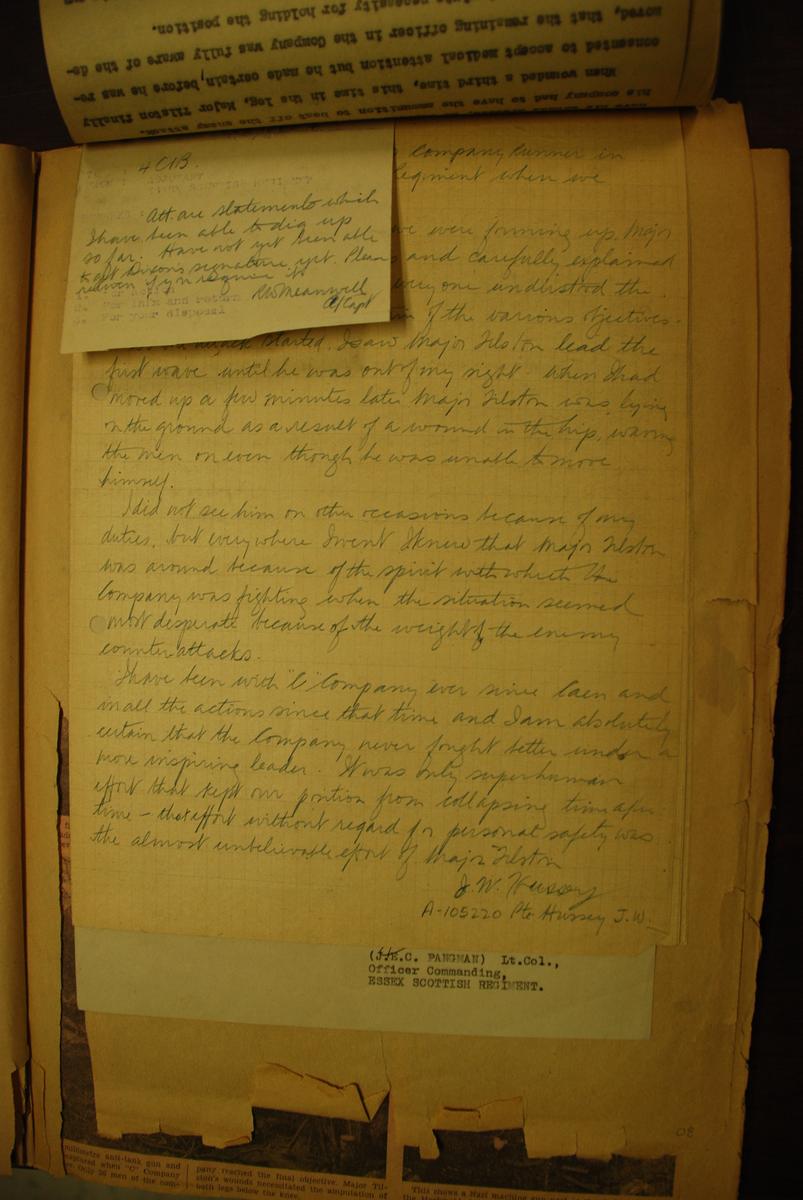 his company had to have the ammunition to beat off the enemy attack.
When wounded a third time, this time in the leg, Major Tilston finally
consented to accept medical attention but he made certain, before he was re-
moved, that the remaining officer in the Company was fully aware of the
necessity for holding the position.
4 CIB.
Att. are statements which
I have been able to dig up
so far. Have not yet been able
to get Dixon's signature yet. Please
return if you require it.
RWMeanwell
A/Capt
For info and return
For your disposal
Company Runner in
Regiment when we
we were forming up. Major
and carefully explained
everyone understood the
of the various objectives.
attack started. I saw Major Tilston lead the
first wave until he was out of my sight. When I had
moved up a few minutes later Major Tilston was lying
on the ground as a result of a wound in the hip, waving
the men on even though he was unable to move
himself.
I did not see him on other occasions because of my
duties, but everywhere I went I knew that Major Tilston
was around because of the spirit with which the
Company was fighting when the situation seemed
most desperate because of the weight of the enemy
counter attacks.
I have been with "C" Company ever since Caen and
in all the actions since that time and I am absolutely
certain that the Company never fought better under a
more inspiring leader. It was only superhuman
effort that kept our position from collapsing time after
time - that effort without regard for personal safety was
the almost unbelievable effort of Major Tilston
J. W. Hussey
A-105220 Pte Hussey J.W.
(J.E.C. PANGMAN) Lt.Col.,
Officer Commanding,
ESSEX SCOTTISH REGIMENT.
80
millimetre anti-tank gun and
captured when "C" Company
Only 26 men of the com-
pany reached the final objective. Major Til-
ston's wounds necessitated the amputation of
both legs below the knee.
This shows a Nazi machine gun